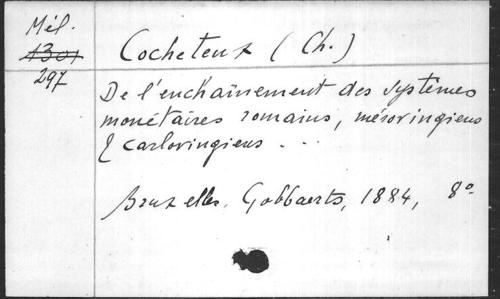 Mél.
1301
297
Cocheteux (Ch.)
De l'enchaînement des systèmes
monétaires romains, mérovingiens
& carlovingiens ...
Bruxelles, Gobbaerts, 1884, 8°